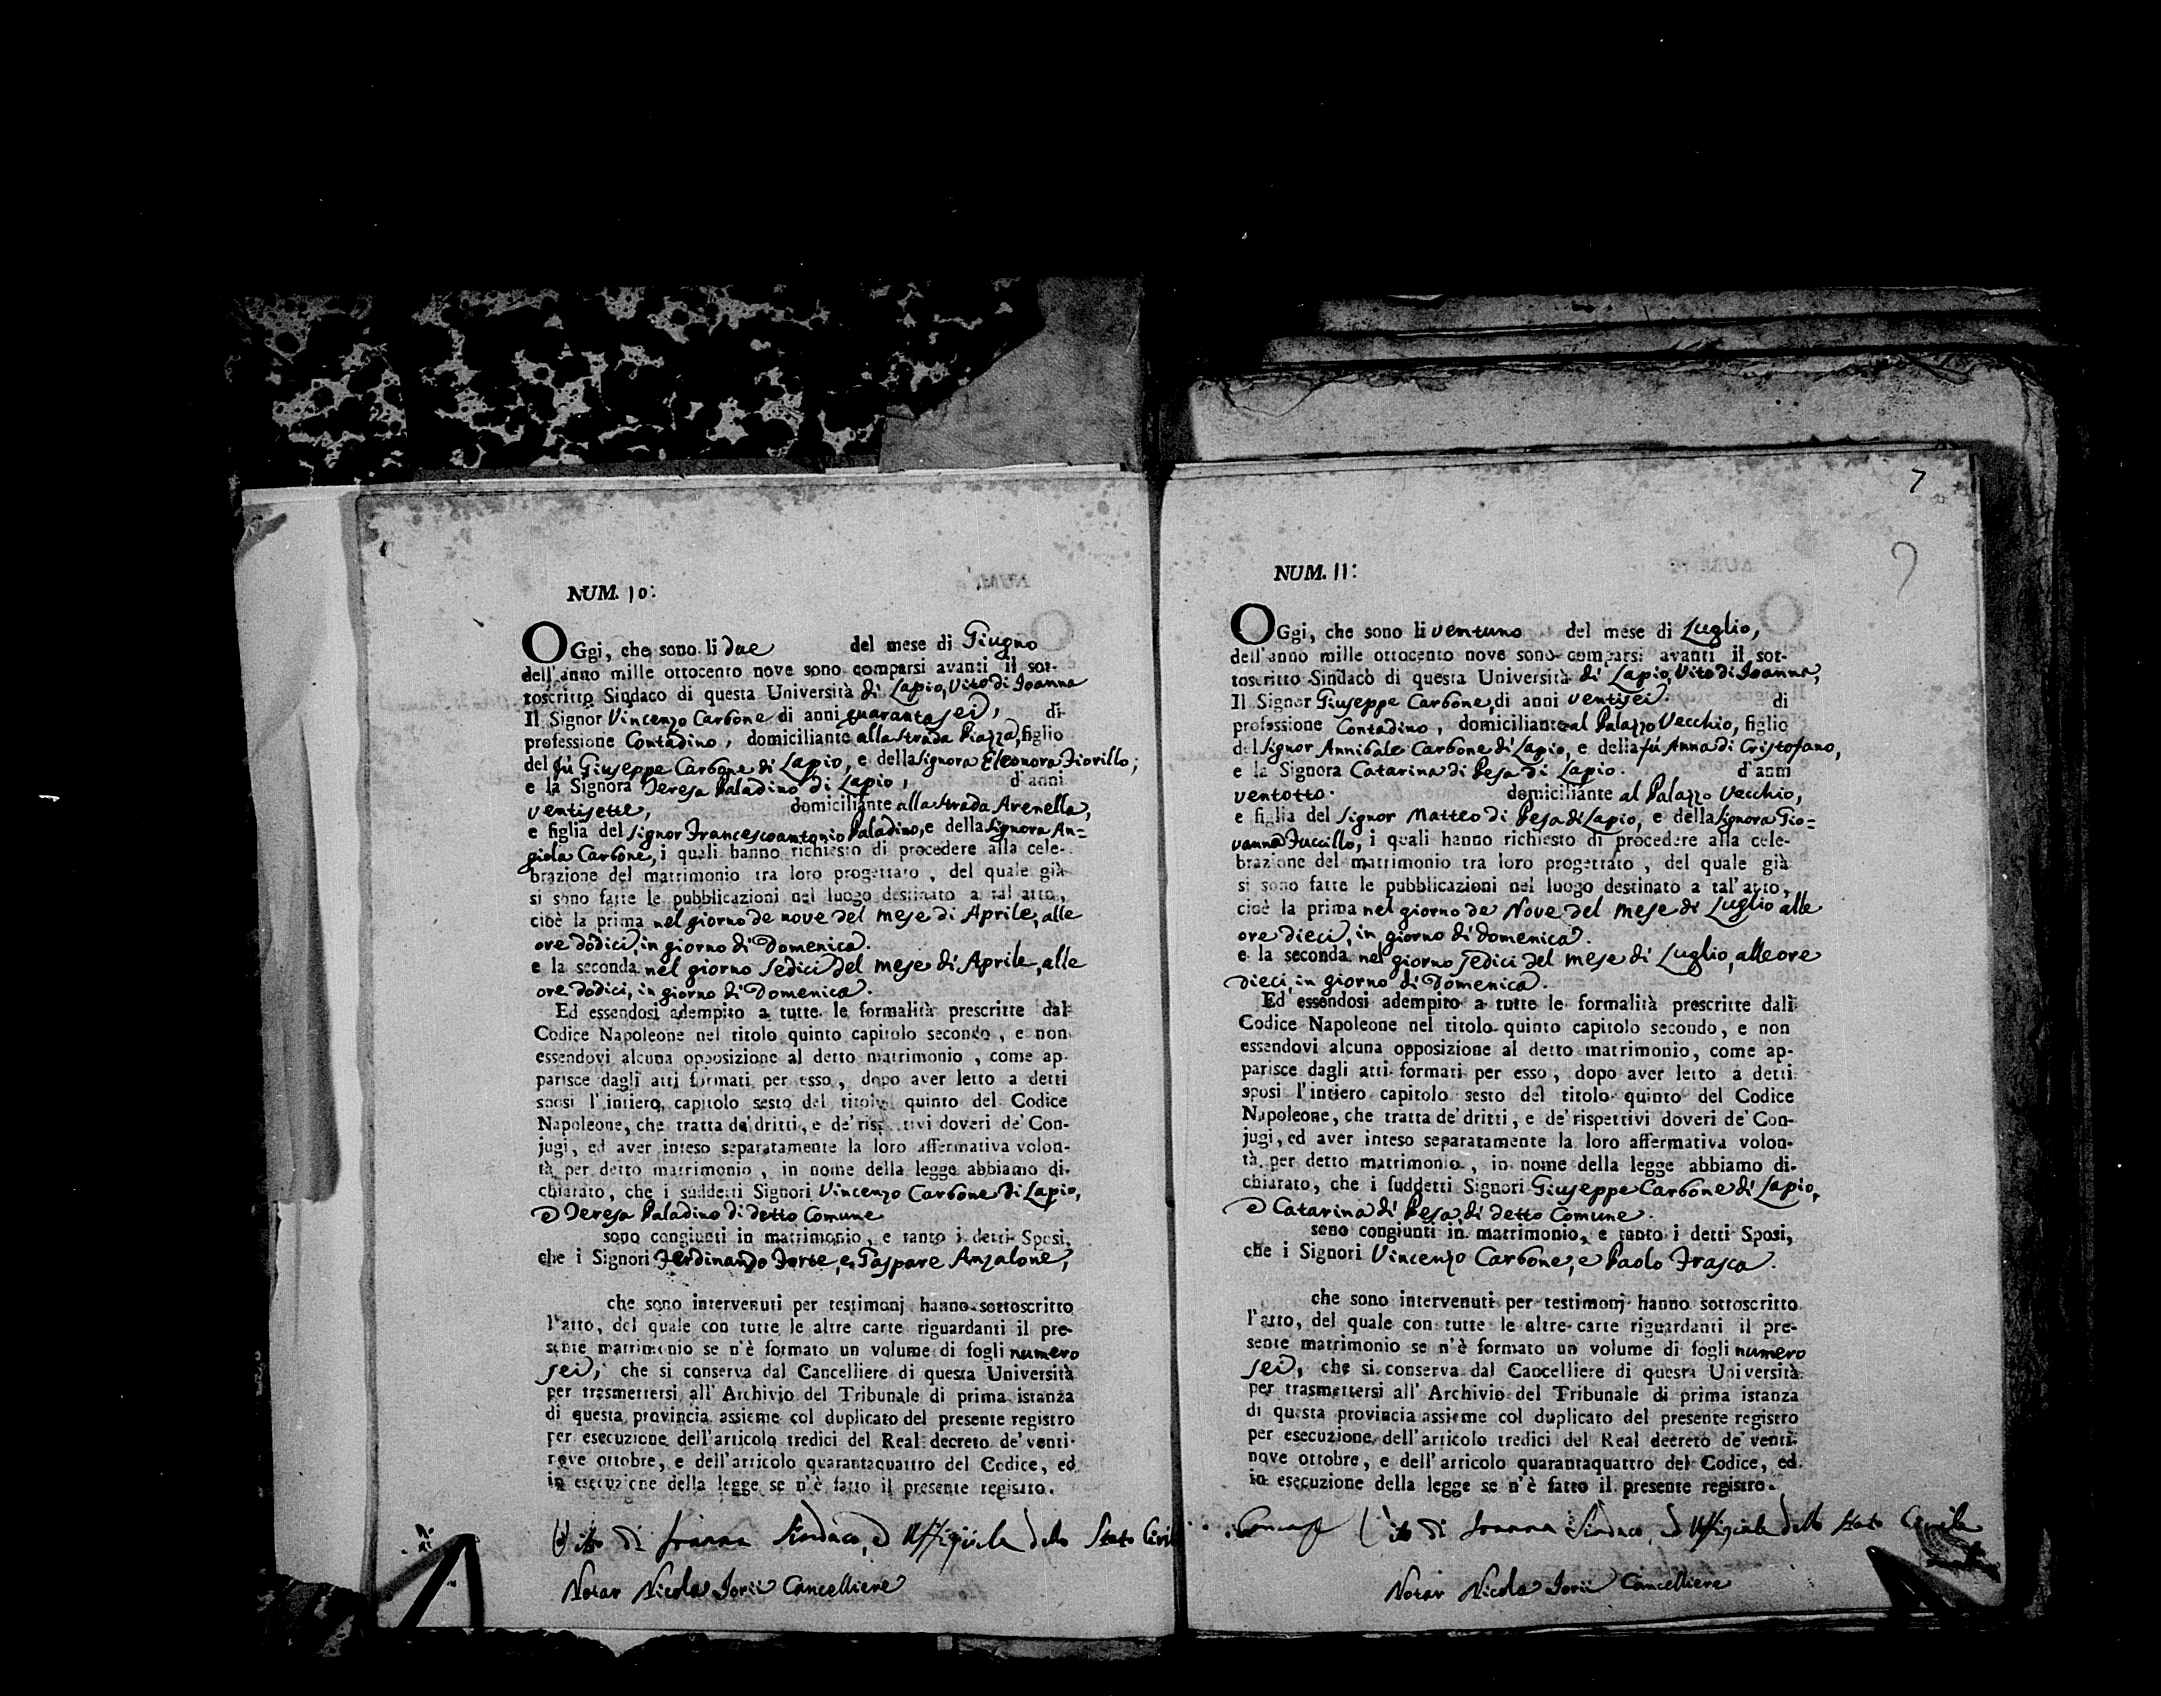 NUM. 10:
OGgi, che sono li due del mese di Giugno
dell'anno mille ottocento nove sono comparsi avanti il sot-
toscritto Sindaco di questa Università di Lapio, Vito di Ioanna
Il Signor Vincenzo Carbone di anni quarantasei, di
professione Contadino, domiciliante alla strada Piazza, figlio
del fù Giuseppe Carbone di Lapio, e della Signora Eleonora Fiorillo;
e la Signora Teresa Paladino di Lapio, d'anni
ventisette, domiciliante alla strada Arenella,
e figlia del Signor Francescoantonio Paladino, e della Signora An=
giola Carbone, i quali hanno richiesto di procedere alla cele-
brazione del matrimonio tra loro progettato, del quale già
si sono fatte le pubblicazioni nel luogo destinato a tal atto,
cioè la prima nel giorno de nove del mese di Aprile, alle
ore dodici, in giorno di Domenica.
e la seconda nel giorno sedici del mese di Aprile, alle
ore dodici, in giorno di Domenica.
Ed essendosi adempito a tutte le formalità prescritte dal
Codice Napoleone nel titolo quinto capitolo secondo, e non
essendovi alcuna opposizione al detto matrimonio, come ap-
parisce dagli atti formati per esso, dopo aver letto a detti
sposi l'intiero capitolo sesto del titolo quinto del Codice
Napoleone, che tratta de' dritti, e de' rispettivi doveri de' Con-
jugi, ed aver inteso separatamente la loro affermativa volon-
tà per detto matrimonio, in nome della legge abbiamo di-
chiarato, che i suddetti Signori Vincenzo Carbone di Lapio,
e Teresa Paladino di detto Comune
sono congiunti in matrimonio, e tanto i detti Sposi,
che i Signori Ferdinando Forte, e Gaspare Anzalone,
che sono intervenuti per testimonj hanno sottoscritto
l'atto, del quale con tutte le altre carte riguardanti il pre-
sente matrimonio se n'è formato un volume di fogli numero
sei, che si conserva dal Cancelliere di questa Università
per trasmettersi all' Archivio del Tribunale di prima istanza
di questa provincia assieme col duplicato del presente registro
per esecuzione dell'articolo tredici del Real decreto de' venti-
nove ottobre, e dell'articolo quarantaquattro del Codice, ed
in esecuzione della legge se n'è fatto il presente registro.
Vito di Ioanna Sindaco, ed Uffiziale dello Stato Civil
Notar Nicola Iorii Cancelliere
7
NUM. 11:
OGgi, che sono li ventuno del mese di Luglio,
dell'anno mille ottocento nove sono comparsi avanti il sot-
toscritto Sindaco di questa Università di Lapio, Vito di Ioanna,
Il Signor Giuseppe Carbone, di anni ventisei. di
professione Contadino, domiciliante al Palazzo Vecchio, figlio
del Signor Annibale Carbone di Lapio, e della fù Anna di Cristofano,
e la Signora Catarina di Pesa di Lapio. d'anni
ventotto. domiciliante al Palazzo Vecchio,
e figlia del Signor Matteo di Pesa di Lapio, e della Signora Gio=
vanna Fuccillo, i quali hanno richiesto di procedere alla cele-
brazione del matrimonio tra loro progettato, del quale già
si sono fatte le pubblicazioni nel luogo destinato a tal' atto,
cioè la prima nel giorno de Nove del mese di Luglio alle
ore dieci, in giorno di domenica.
e la seconda nel giorno sedici del mese di Luglio, alle ore
dieci, in giorno di Domenica.
Ed essendosi adempito a tutte le formalità prescritte dal
Codice Napoleone nel titolo quinto capitolo secondo, e non
essendovi alcuna opposizione al detto matrimonio, come ap-
parisce dagli atti formati per esso, dopo aver letto a detti
sposi l'intiero capitolo sesto del titolo quinto del Codice
Napoleone, che tratta de' dritti, e de' rispettivi doveri de' Con-
jugi, ed aver inteso separatamente la loro affermativa volon-
tà per detto matrimonio, in nome della legge abbiamo di-
chiarato, che i suddetti Signori Giuseppe Carbone di Lapio,
e Catarina di Pesa, di detto Comune.
sono congiunti in matrimonio, e tanto i detti Sposi,
che i Signori Vincenzo Carbone, e Paolo Frasca.
che sono intervenuti per testimonj hanno sottoscritto
l'atto, del quale con tutte le altre carte riguardanti il pre-
sente matrimonio se n'è formato un volume di fogli numero
sei, che si conserva dal Cancelliere di questa Università
per trasmettersi all' Archivio del Tribunale di prima istanza
di questa provincia assieme col duplicato del presente registro
per esecuzione dell'articolo tredici del Real decreto de' venti-
nove ottobre, e dell'articolo quarantaquattro del Codice, ed
in esecuzione della legge se n'è fatto il presente registro.
Vito di Ioanna Sindaco, ed Uffiziale dello Stato Civile
Notar Nicola Iorii Cancelliere